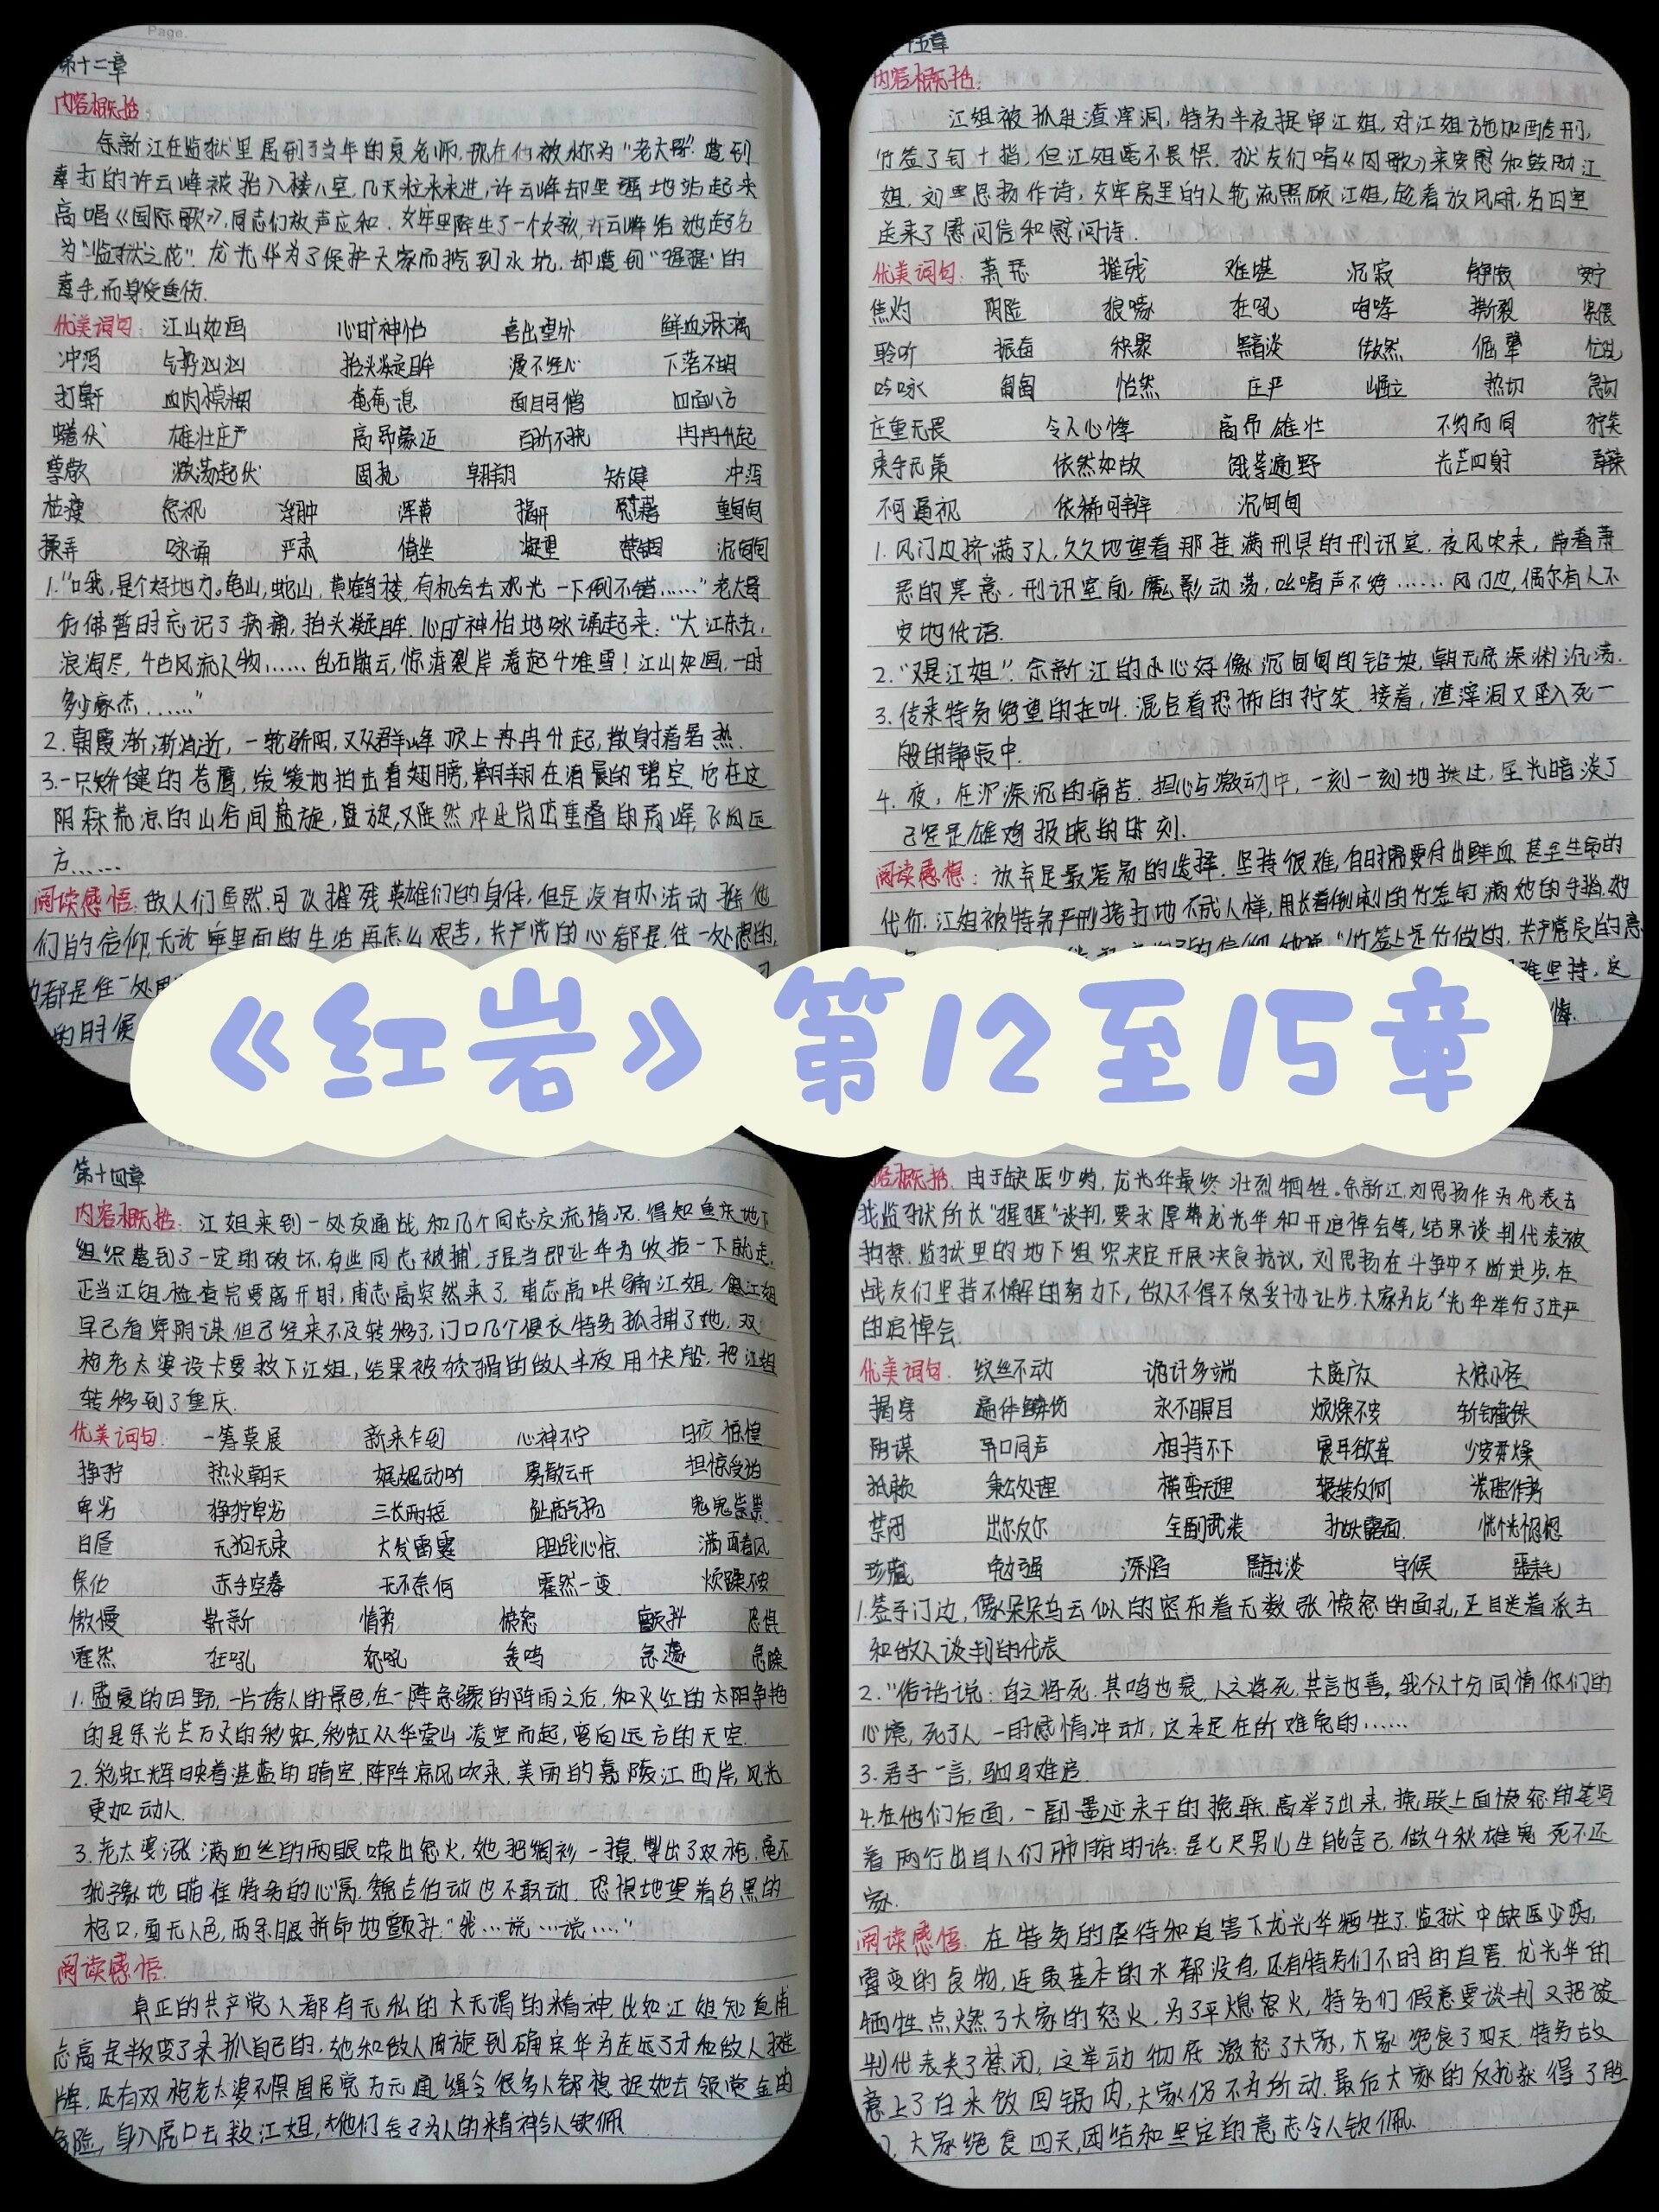 Page.
第十二章
内容概括
余新江在监狱里遇到了当年的夏老师,现在们被称为“老大哥”.遭到
毒打的许云峰被抬入楼八室,几天粒米未进,许云峰却坚强地站起来
高唱《国际歌》,同志们放声应和.女牢里降生了一个女孩,许云峰给她起名
为“监狱之花”.龙光华为了保护大家而挖到水坑,却遭到“猩猩”的
毒手,而身受重伤.
优美词句: 江山如画 心旷神怡 喜出望外 鲜血淋漓
冲泻 气势汹汹 抬头凝眸 漫不经心 下落不明
打鼾 血肉模糊 奄奄一息 面目可憎 四面八方
蜷伏 雄壮庄严 高昂豪迈 百折不挠 冉冉升起
尊敬 激荡起伏 固执 翱翔 矫健 冲泻
枯瘦 怒视 浮肿 浑黄 揭开 慰藉
操弄 咏诵 严肃 倚坐 凝重 禁锢 沉甸甸
1.“哦,是个好地方。龟山,蛇山,黄鹤楼,有机会去观光一下倒不错……”老大哥
仿佛暂时忘记了病痛,抬头凝眸.心旷神怡地咏诵起来:“大江东去,
浪淘尽,千古风流人物……乱石崩云,惊涛裂岸,卷起千堆雪!江山如画,一时
多少豪杰……”
2.朝霞渐渐消逝,一轮骄阳,又从群峰顶上冉冉升起,散射着暑热.
3.一只矫健的苍鹰,缓缓地拍击着翅膀,翱翔在清晨的碧空.它在这
阴森荒凉的山谷间盘旋,盘旋,又陡然冲出岗峦重叠的高峰,飞向远
方……
阅读感悟:敌人们虽然可以摧残英雄们的身体,但是没有办法动摇他
们的信仰,无论牢里面的生活再怎么艰苦,共产党的心都是往一处想的,
都是往一处用
的时候
第十五章
内容概括:
江姐被抓进渣滓洞,特务半夜提审江姐,对江姐施加酷刑,
竹签子钉十指,但江姐毫不畏惧.狱友们唱《囚歌》来安慰和鼓励江
姐.刘思扬作诗,女牢房里的人轮流照顾江姐,趁着放风时,各囚室
送来了慰问信和慰问诗.
优美词句: 萧瑟 摧残 难堪 沉寂 静寂 安宁
焦灼 阴险 狼嚎 狂吼 咆哮 撕裂
聆听 振奋 积聚 黯淡 傲然 倔犟
吟咏 匍匐 怡然 庄严 屹立 热切
庄重无畏 令人心悸 高昂雄壮 不约而同 狞笑
束手无策 依然如故 饿莩遍野 光芒四射
不可逼视 依稀可辨 沉甸甸
1.风门边挤满了人,久久地望着那挂满刑具的刑讯室.夜风吹来,带着萧
瑟的寒意.刑讯室间,魔影动荡,吆喝声不绝……风门边,偶尔有人不
安地低语.
2.“又是江姐”.余新江的心好像沉甸甸的铅块,朝无底深渊沉落.
3.传来特务绝望的狂叫.混合着恐怖的狞笑.接着,渣滓洞又坠入死一
般的静寂中.
4.夜,在沉深沉的痛苦、担心与激动中,一刻一刻地挨过,星光暗淡了
已经是雄鸡报晓的时刻.
阅读感想:放弃是最容易的选择.坚持很难,有时需要付出鲜血甚至生命的
代价.江姐被特务严刑拷打地不成人样,用长着倒刺的竹签钉满她的手指.她
的信仰,她说:“竹签上是竹做的,共产党员的意
难坚持,这
《红岩》第12至15章
第十四章
内容概括: 江姐来到一处交通战和几个同志交流情况.得知重庆地下
组织遭到了一定的破坏.有些同志被捕,于是当即让华为收拾一下就走.
正当江姐检查完要离开时,甫志高突然来了.甫志高哄骗江姐,但江姐
早已看穿阴谋但已经来不及转移了,门口几个便衣特务抓捕了她.双
枪老太婆设卡要救下江姐,结果被狡猾的敌人半夜用快船,把江姐
转移到了重庆.
优美词句. 一筹莫展 新来乍到 心神不宁 日夜恓惶
狰狞 热火朝天 雾散云开 担惊受怕
卑劣 狰狞卑劣 三长两短 趾高气扬 鬼鬼祟祟
白昼 无拘无束 大发雷霆 胆战心惊 满面春风
保位 赤手空拳 无可奈何 霍然一变 烦躁不安
傲慢 崭新 情势 愤怒 颤抖 恐惧
霍然 狂吼 怒吼 轰鸣 急遽 危险
1.盛夏的田野,一片诱人的景色,在一阵急骤的阵雨之后,和火红的太阳争艳
的是乐光芒万丈的彩虹,彩虹从华蓥山凌空而起,弯向远方的天空.
2.彩虹辉映着湛蓝的晴空,阵阵凉风吹来,美丽的嘉陵江西岸,风光
更加动人.
3.老太婆涨满血丝的两眼喷出怒火,她把绸衫一撩,掣出了双枪,毫不
犹豫地瞄准特务的心窝.魏吉伯动也不敢动.恐惧地望着乌黑的
枪口,面无人色,两条腿拼命地颤抖:“我…说…说……”
阅读感悟.
真正的共产党人都有无私的大无谓的精神.比如江姐知道甫
志高是叛变了来抓自己的,她和敌人周旋到确定华为走远了才和敌人摊
牌,还有双枪老太婆不惧国民党万元通缉令很多人都想捉她去领赏金的
危险,身入虎口去救江姐,他们舍己为人的精神令人钦佩
内容概括.由于缺医少药,龙光华最终壮烈牺牲。余新江,刘思扬作为代表去
找监狱所长“猩猩”谈判,要求厚葬龙光华和开追悼会等,结果谈判代表被
拘禁.监狱里的地下组织决定开展决食抗议,刘思扬在斗争中不断进步.在
战友们坚持不懈的努力下,敌人不得不妥协让步.大家为龙光华举行了庄严
的追悼会.
优美词句. 纹丝不动 诡计多端 大庭广众 大惊小怪
捐穿 遍体鳞伤 永不瞑目 烦燥不安 斩钉截铁
阴谋 异口同声 相持不下 震耳欲聋 少安毋燥
抵赖 秉公处理 横蛮无理 辗转反侧 装腔作势
禁闭 出尔反尔 全副武装 抛头露面 恍恍惚惚
珍藏 勉强 深陷 黯淡 守候 噩耗
1.签子门边,像朵朵乌云似的密布着无数张愤怒的面孔,正目送着派去
和敌人谈判的代表
2.“俗话说:鸟之将死,其鸣也哀,人之将死,其言也善。我个人十分同情你们的
心境,死了人,一时感情冲动,这本是在所难免的……
3.君子一言,驷马难追
4.在他们后面,一副墨迹未干的挽联,高举了出来,挽联上面愤怒的笔写
着两行出自人们肺腑的话:是七尺男儿生能舍己,做千秋雄鬼死不还
家.
阅读感悟. 在特务的虐待和迫害下龙光华牺牲了.监狱中缺医少药,
霉变的食物,连最基本的水都没有,还有特务们不时的迫害.龙光华的
牺牲点燃了大家的怒火,为了平熄怒火,特务们假意要谈判又把谈
判代表关了禁闭,这举动彻底激怒了大家,大家绝食了四天.特务故
意上了白米饭回锅肉,大家仍不为所动.最后大家的反抗获得了胜
大家绝食四天,团结和坚定的意志令人钦佩.